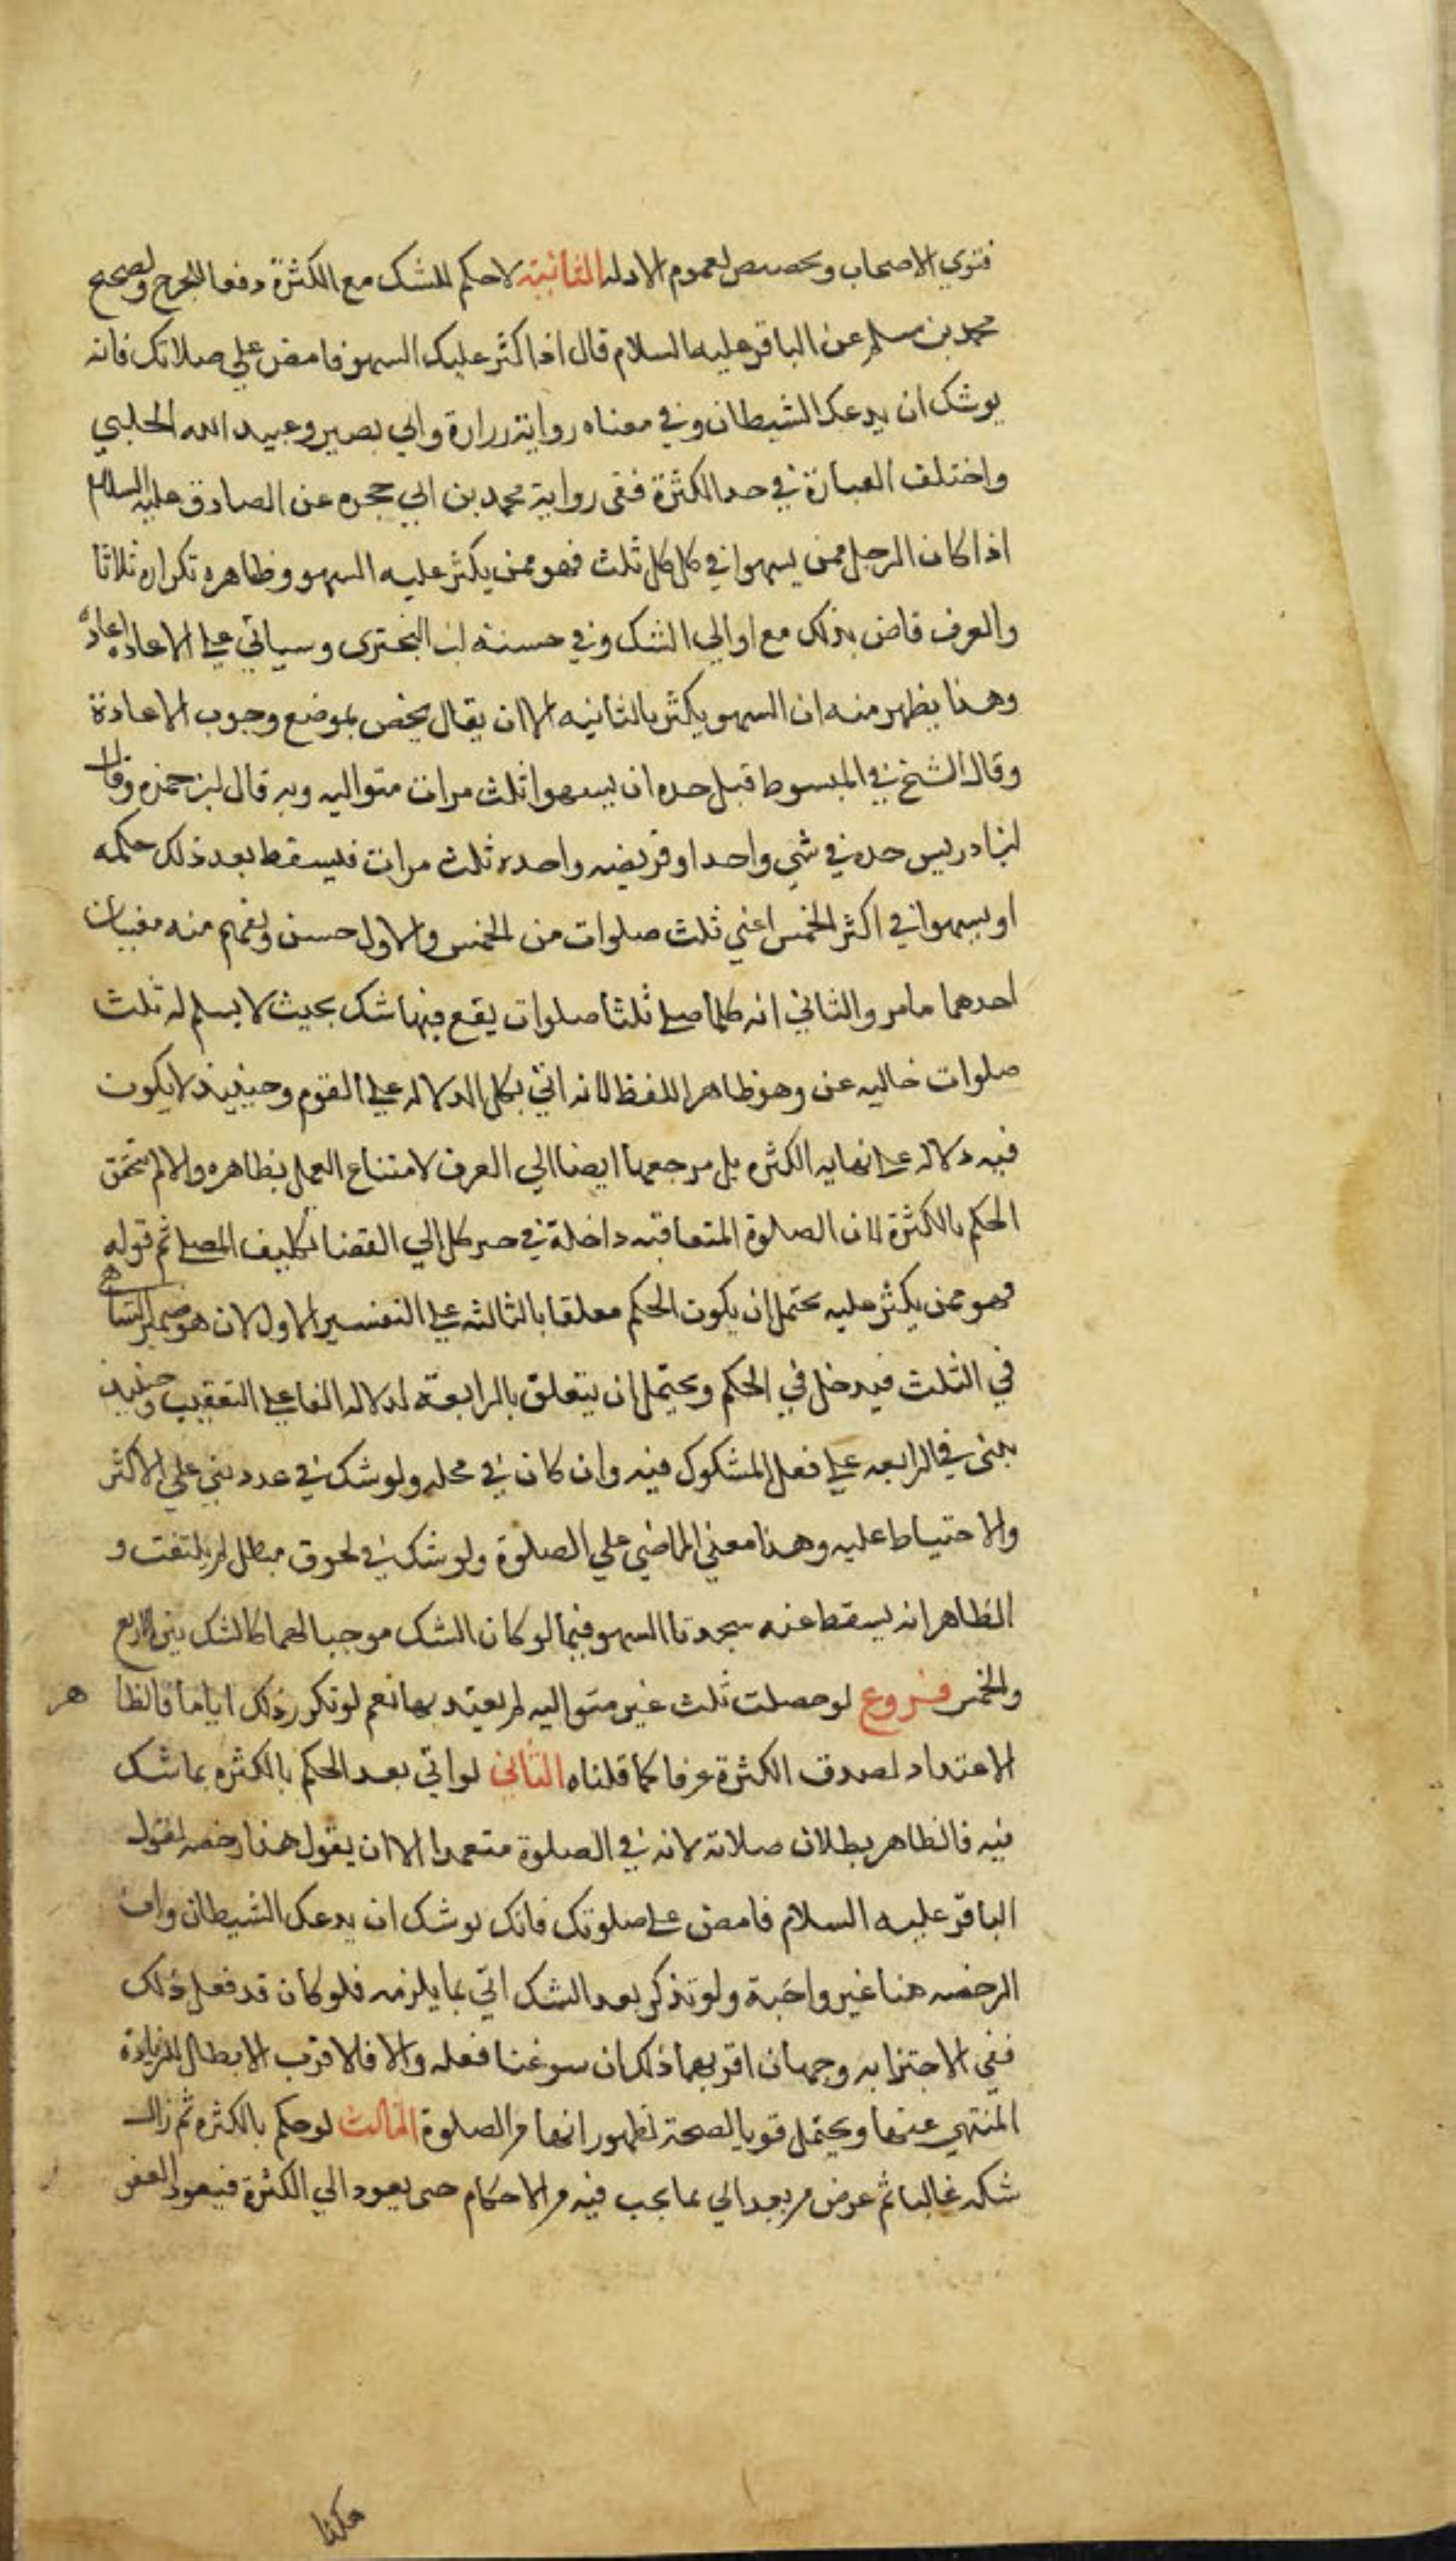 فتوي الاصحاب وتخصيص لعموم الادله الثانية لاحكم للشك مع الكثرة دفعا للحرج ولصحيح
محمد بن مسلم عن الباقر عليه السلام قال اذا كثر عليك السهو فامض علي صلاتك فانه
يوشك ان يدعك الشيطان وفي معناه رواية زرارة وابي بصير وعبيد الله الحلبي
واختلف العبارة في حد الكثرة ففي رواية محمد بن ابي حمزه عن الصادق عليه السلام
اذا كان الرجل ممن يسهوا في كل كل ثلث فهو ممن يكثر عليه السهو وظاهره تكراره ثلاثا
والعرف قاض بذلك مع اوالي الشك وفي حسنة ابن البختري وسياتي علي الاعاده اعادة
وهذا يظهر منه ان السهو يكثر بالثانيه الا ان يقال يخص بموضع وجوب الاعادة
وقال الشيخ في المبسوط قبل حده ان يسهوا ثلث مرات متواليه وبه قال ابن حمزه وقال
ابن ادريس حده في شي واحد او فريضه واحده ثلث مرات فيسقط بعد ذلك حكمه
او يسهوا في اكثر الخمس اعني ثلث صلوات من الخمس والاول حسن ويفهم منه معنيان
احدهما مامر والثاني انه كلما صلي ثلثا صلوات يقع فيها شك بحيث لا يسلم له ثلث
صلوات خاليه عن وهو ظاهر اللفظ لانه اتي بكل الدلاله علي القوم وحينيذ لا يكون
فيه دلاله علي نهايه الكثره بل مرجعها ايضا الي العرف لامتناع العمل بظاهره والا لم يتحقق
الحكم بالكثرة لان الصلوة المتعاقبه داخلة في حيز كل الي انقضا تكليف المصلي ثم قوله
فهو ممن يكثر عليه يحتمل ان يكون الحكم معلقا بالثالثه علي التفسير الاول لان هو ضمير الساهي
في الثلث فيدخل في الحكم ويحتمل ان يتعلق بالرابعة لدلاله الفا علي التعقيب وحينيذ
يبني في الرابعه علي فعل المشكوك فيه وان كان في محله ولو شك في عدد بني علي الاكثر
ولا احتياط عليه وهذا معني الماضي علي الصلوة ولو شك في لحوق مبطل لم يلتفت و
الظاهر انه يسقط عنه سجدتا السهو فيما لو كان الشك موجبا لهما كالشك بين الاربع
والخمس فروع لو حصلت ثلث غير متواليه لم يعتد بها نعم لو تكرر ذلك اياما فالظاهر
الاعتداد لصدق الكثرة عرفا كما قلناه الثاني لو اتي بعد الحكم بالكثره بما شك
فيه فالظاهر بطلان صلاته لانه في الصلوة متعمدا الا ان يقول هذا رخصه لقول
الباقر عليه السلام فامض علي صلوتك فانك يوشك ان يدعك الشيطان وان
الرخصه هنا غير واجبة ولو تذكر بعد الشك اتي بما يلزمه فلو كان قد فعل ذلك
ففي الاجتزا به وجهان اقربهما ذلك ان سوغنا فعله والا فالاقرب الابطال للزيادة
المنهي عنها ويحتمل قويا الصحة لظهور انها من الصلوة الثالث لو حكم بالكثره ثم زال
شكه غالبا ثم عرض من بعد اتي بما يجب فيه من الاحكام حتي يعود الي الكثرة فيعود العفو
هكذا